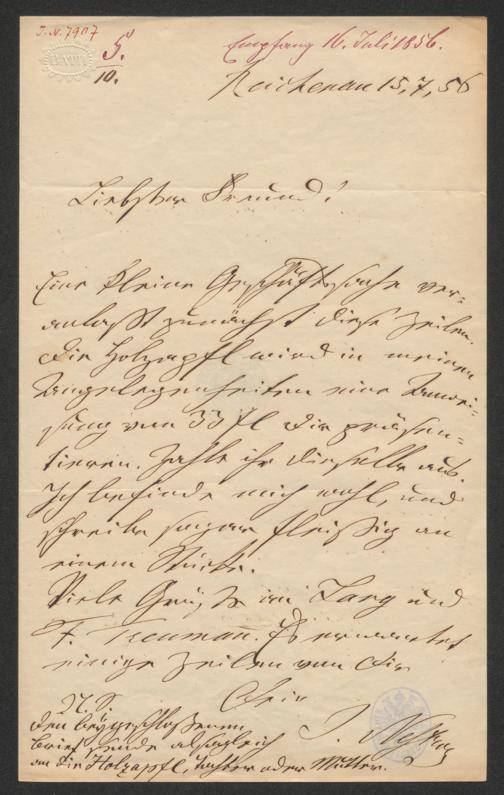 I. N. 7907
BATH
5.
10.
Empfang 16. Juli 1856.
Reichenau 15, 7, 56
Liebster Freund!
Eine kleine Geschäftssache ver-
anlaßt zunächst diese Zeilen.
Die Holzapfl wird in meinen
Angelegenheiten eine Anwei-
sung von 33 fl dir präsen-
tieren. Zahle ihr dieselbe aus.
Ich befinde mich wohl, und
schreibe sogar fleißig an
einem Stücke.
Viele Grüße an Lang und
F. Treuman. Es erwartet
einige Zeilen von dir
Dein
J. Nestroy
N. S.
Den beygeschloßenen
Brief sende alsogleich
an die Holzapfl, Tochter oder Mutter.